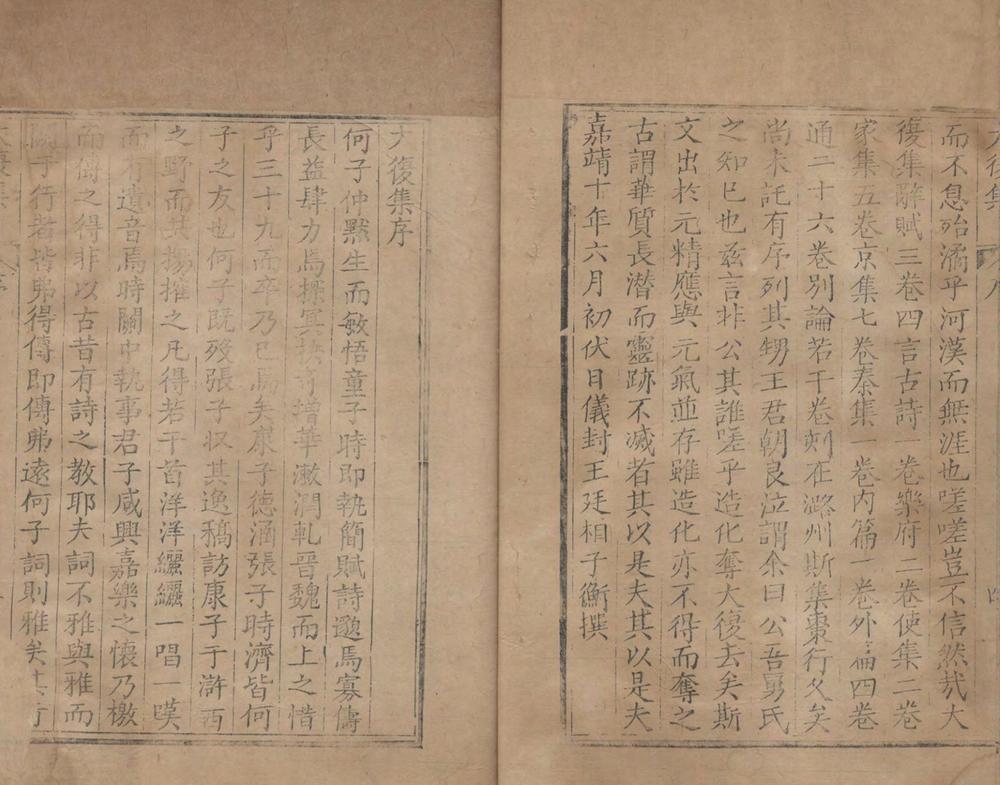 而不息殆潏乎河漢而無涯也嗟嗟豈不信然哉大
復集辭賦三卷四言古詩一卷樂府二卷使集二卷
家集五卷京集七卷秦集一卷內篇一卷外篇四卷
通二十六卷別論若干卷刻在潞州斯集棗行久矣
尚未託有序列其甥王君朝良泣謂余曰公吾舅氏
之知巳也茲言非公其誰嗟乎造化奪大復去矣斯
文出於元精應與元氣並存雖造化亦不得而奪之
古謂華質長潛而靈跡不滅者其以是夫其以是夫
嘉靖十年六月初伏日儀封王廷相子衡撰
大復集序
何子仲黙生而敏悟童子時即執簡賦詩邈焉寡儔
長益肆力焉探冥摘奇增華潄潤軋晉魏而上之惜
乎三十九而卒乃巳焉矣康子德涵張子時濟皆何
子之友也何子旣歿張子収其逸稿訪康子于滸西
之野而共揚搉之凡得若干首洋洋纚纚一唱一嘆
而有遺音焉時關中執事君子咸興嘉樂之懷乃檄
而傳之得非以古昔有詩之教耶夫詞不雅與雅而
闕于行者皆弗得傳即傳弗遠何子詞則雅矣其行